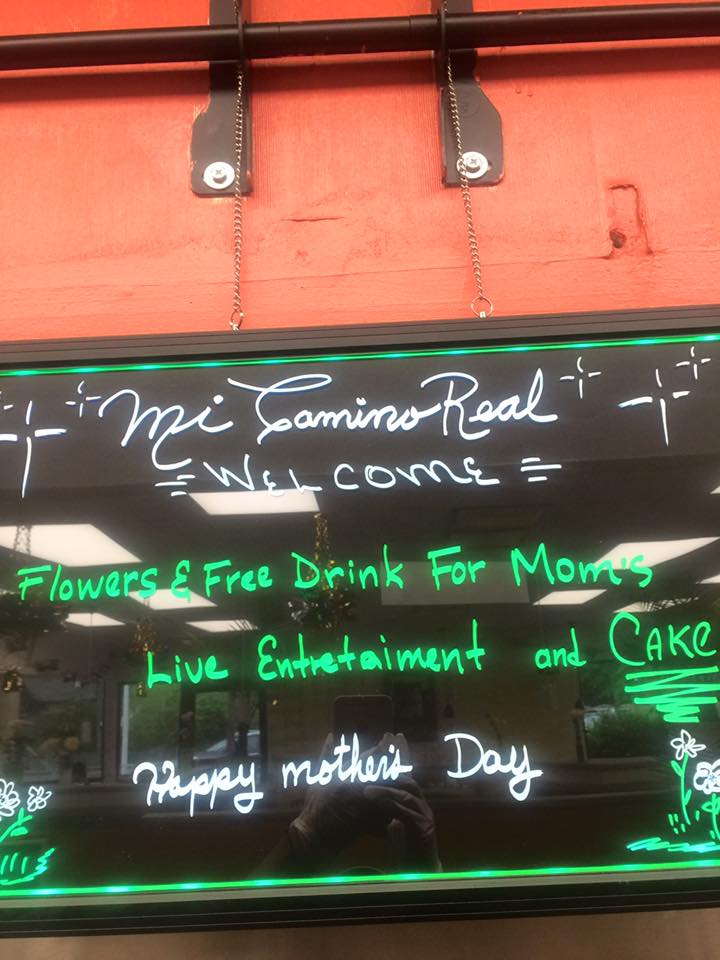 Mi Camino Real
WELCOME
Flowers & Free Drink For Mom's
Live Entretaiment and CAKE
Happy mother's Day